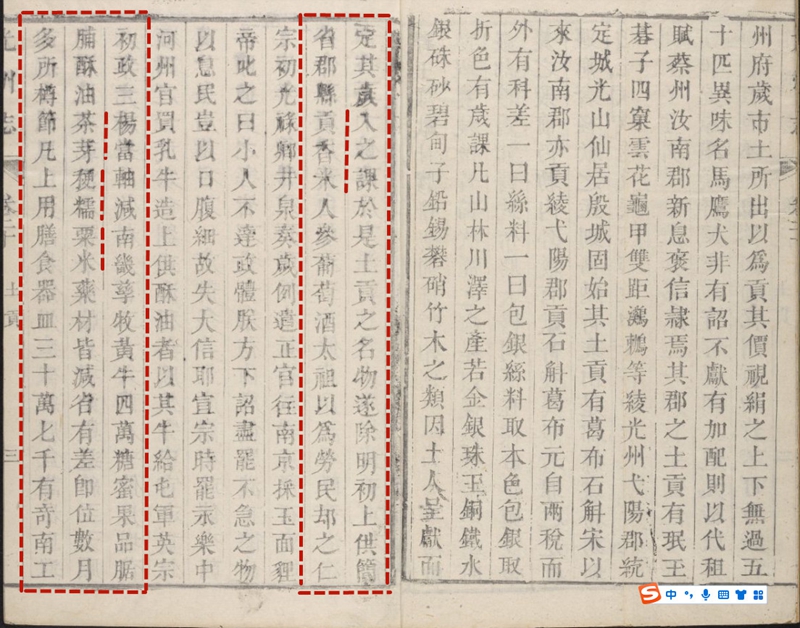 州府歲市土所出以為貢其價視絹之上下無過五
十匹異味名馬鷹犬非有詔不獻有加配則以代租
賦蔡州汝南郡新息褒信隸焉其郡之土貢有珉玉
棊子四窠雲花龜甲雙距鸂鶒等綾光州弋陽郡統
定城光山仙居殷城固始其土貢有葛布石斛宋以
來汝南郡亦貢綾弋陽郡貢石斛葛布元自兩稅而
外有科差一曰絲料一曰包銀絲料取本色包銀取
折色有歲課凡山林川澤之產若金銀珠玉銅鐵水
銀硃砂碧甸子鉛錫礬硝竹木之類因土人呈獻而
定其歲入之課於是土貢之名物遂除明初上供簡
省郡縣貢香米人參葡萄酒太祖以為勞民却之仁
宗初光祿卿井泉奏歲例遣正官往南京採玉面貍
帝叱之曰小人不達政體朕方下詔盡罷不急之物
以息民豈以口腹細故失大信耶宣宗時罷永樂中
河州官買乳牛造上供酥油者以其牛給屯軍英宗
初政三楊當軸減南畿孳牧黃牛四萬糖蜜果品腒
腩酥油茶芽粳糯粟米藥材皆減省有差即位數月
多所樽節凡上用膳食器皿三十萬七千有奇南工
光州志
卷二十
土貢
三
中